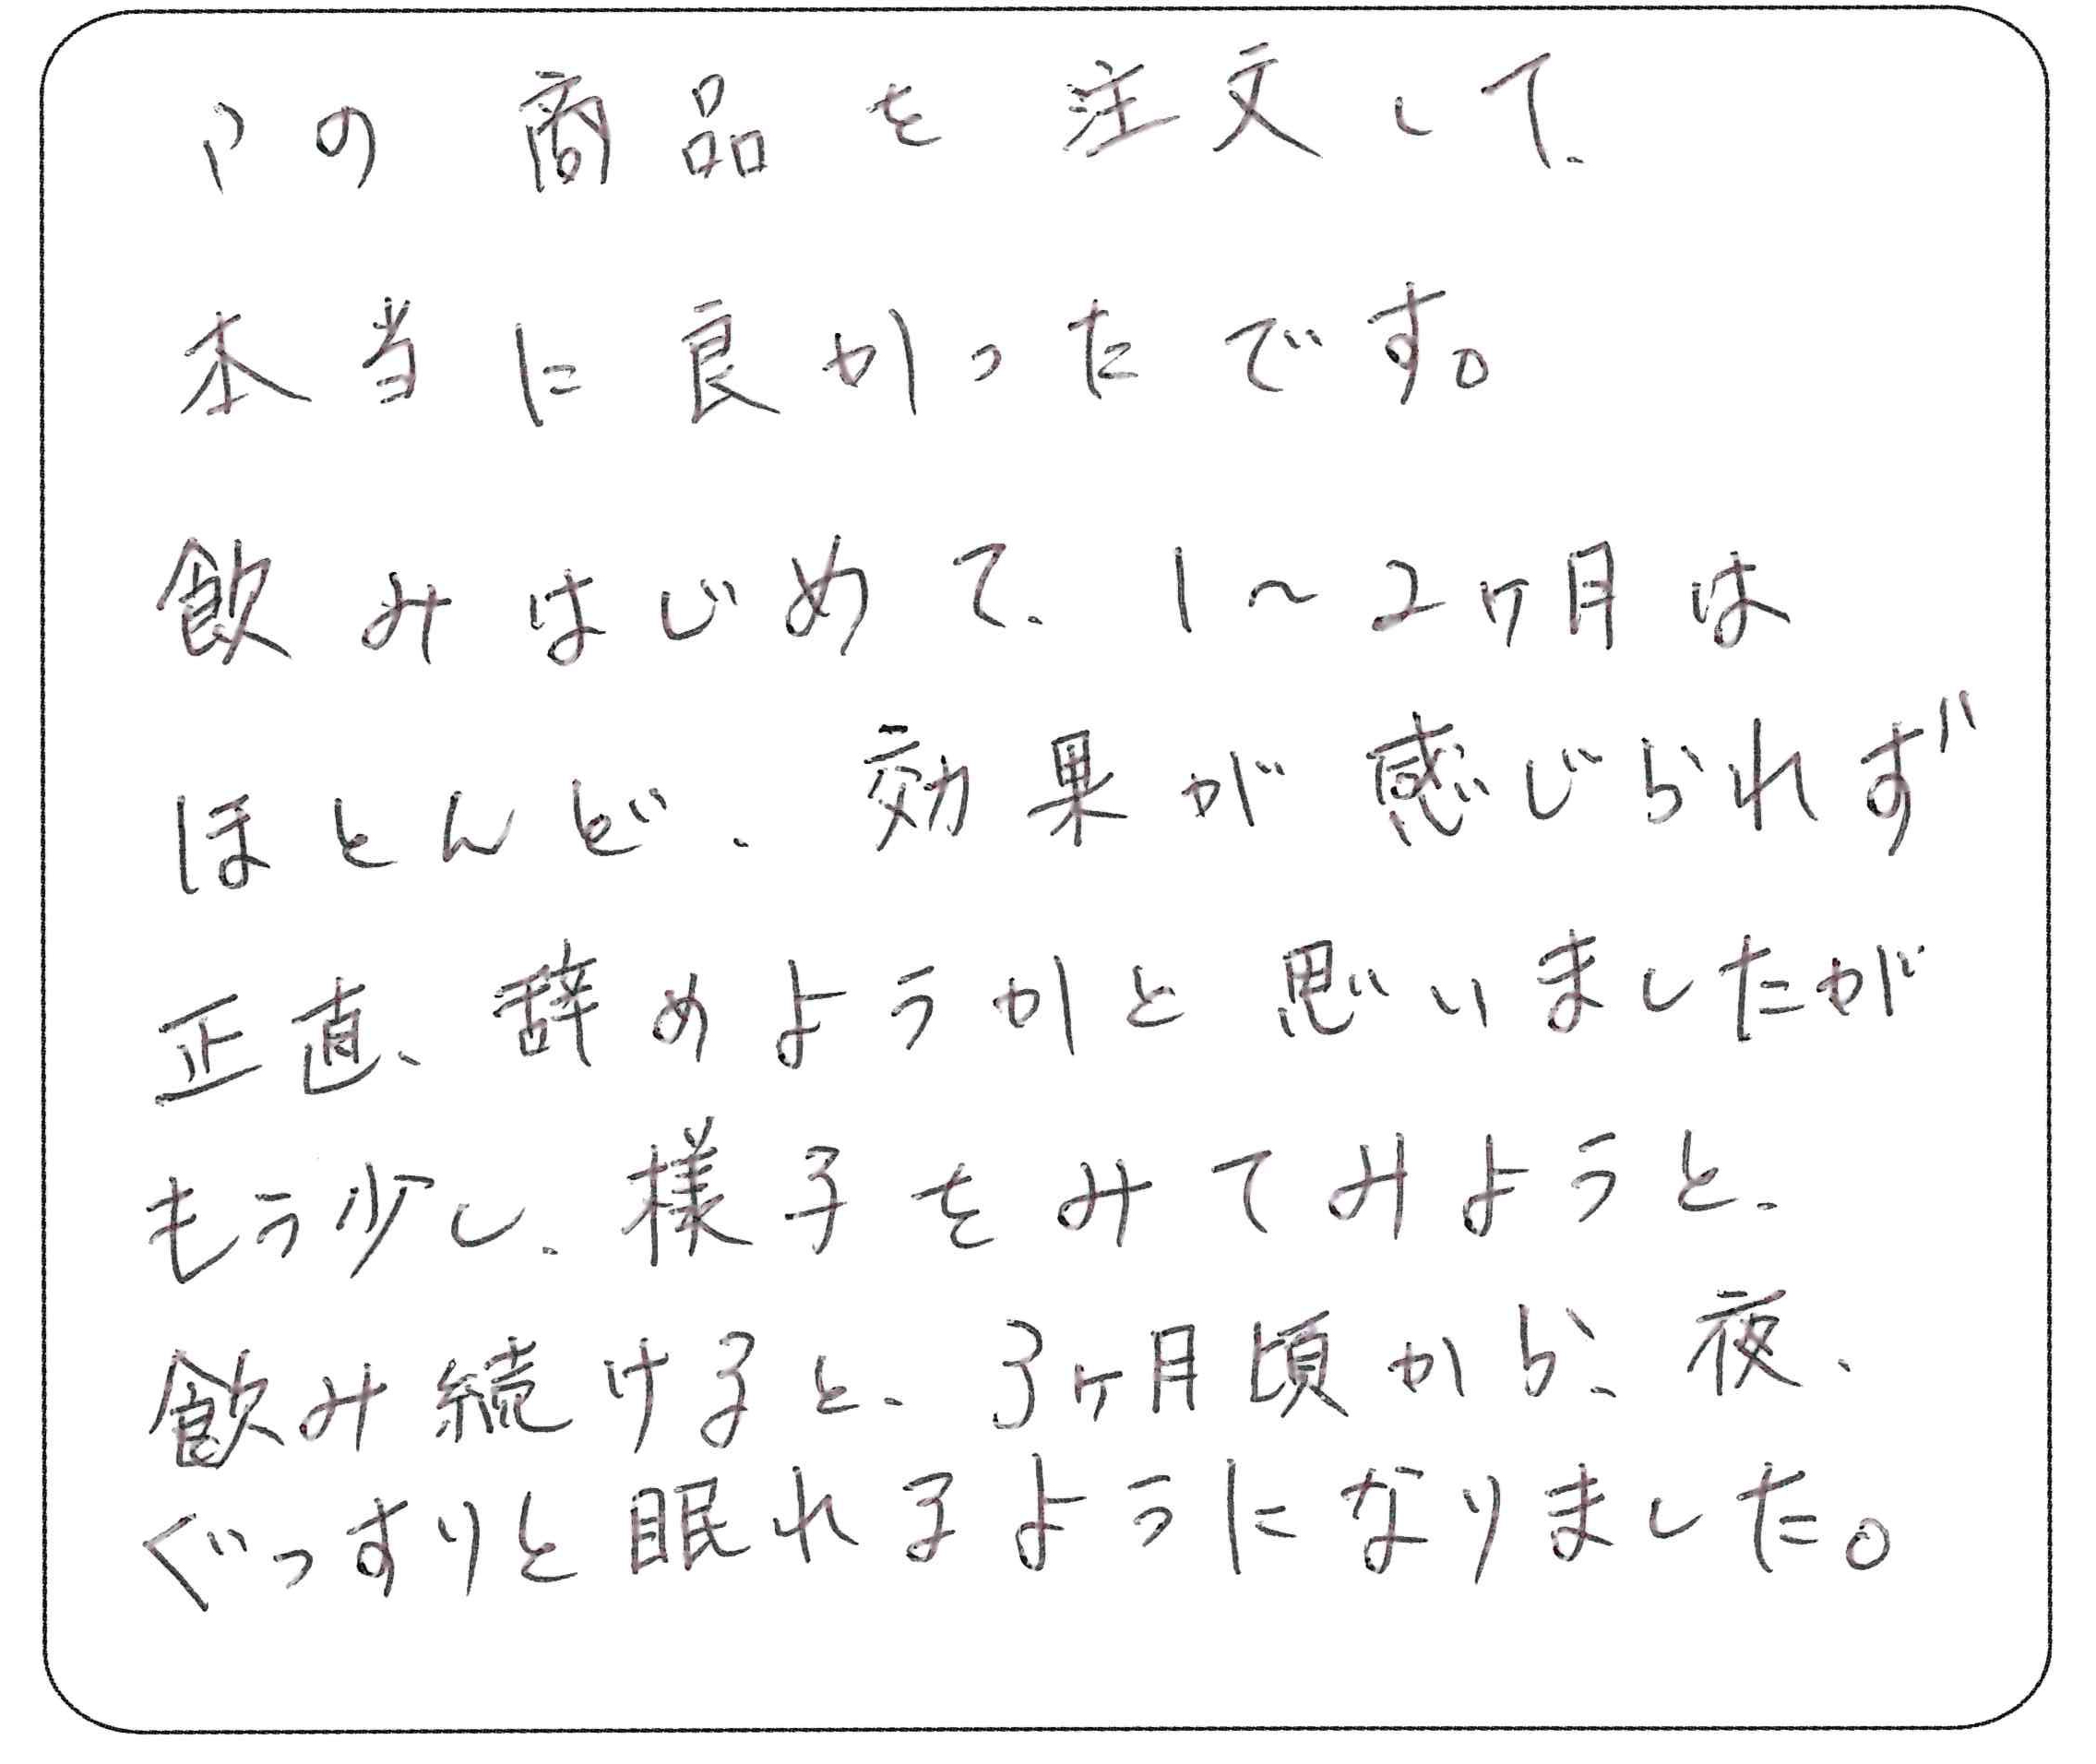 この商品を注文して、
本当に良かったです。
飲みはじめて、1～2ヶ月は
ほとんど、効果が感じられず
正直、辞めようかと思いましたが
もう少し、様子をみてみようと、
飲み続けると、3ヶ月頃から、夜、
ぐっすりと眠れるようになりました。